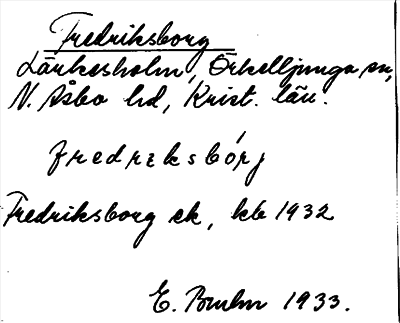 Fredriksborg
Lärkesholm, Örkelljunga sn,
N. Åsbo hd, Krist. län.
fredreksbórj
Fredriksborg ek, kb 1932
E. Bruhn 1933.